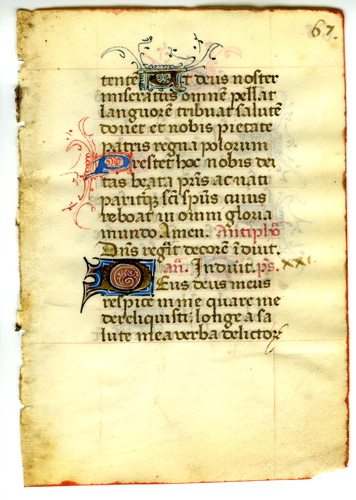 67.
tentē Vt deus noster
miseratus om̄em pellat
languorē tribuat salutē
donet et nobis pietate
patris regna polorum
Prestet hoc nobis dei
tas beata pr̄is ac nati
pariterqꝫ sc̄i sp̄us cuius
reboat in omni gloria
mundo Amen. Antipho
Dn̄s regnt decorē īduit.
an̄. Induit. ps̄. xxi.
Deus deus meus
respice in me quare me
dereliquisti: longe a sa
lute mea verba delictoꝝ